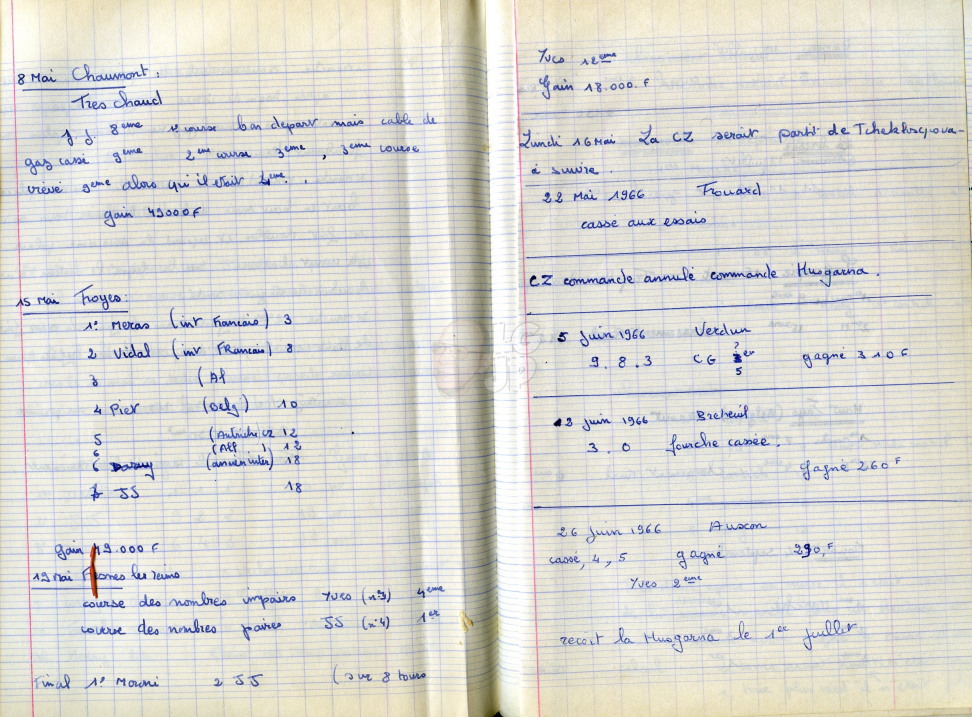 8 Mai Chaumont.
Tres chaud
J. J. 8eme 1e course bon depart mais cable de
gaz cassé 9eme 2eme course 3eme, 3eme course
crévé 9eme alors qu'il etait 4eme.
gain 49000 F
15 Mai Troyes:
1° Meras (int Francais) 3
2 Vidal (int FRancais) 8
3 (Al
4 Piet (Belg) 10
5 (Autriche CZ 12
6 (All ) 12
6 (ancien inter) 18
JJ 18
gain 49.000 F
19 Mai les reims
course des nombres impairs Yves (n°3) 4eme
course des nombres paires JJ (n°4) 1er
Final 1° Morini 2 JJ (sur 8 tours
Yves 12eme
Gain 18.000.F
Lundi 16 Mai La CZ serait parti de
à suivre.
22 Mai 1966 Frouard
cassé aux essais
CZ commande annulé commande Husqarna.
5 Juin 1966 Verdun
9.8.3 CG ? er gagné 310 F
5
juin 1966 Breteuil
3.0 fourche cassée.
Gagné 260 F
26 Juin 1966 Auxon
cassé, 4, 5 gagné 290,F
Yves 2eme
recoit la Husqarna le 1er juillet